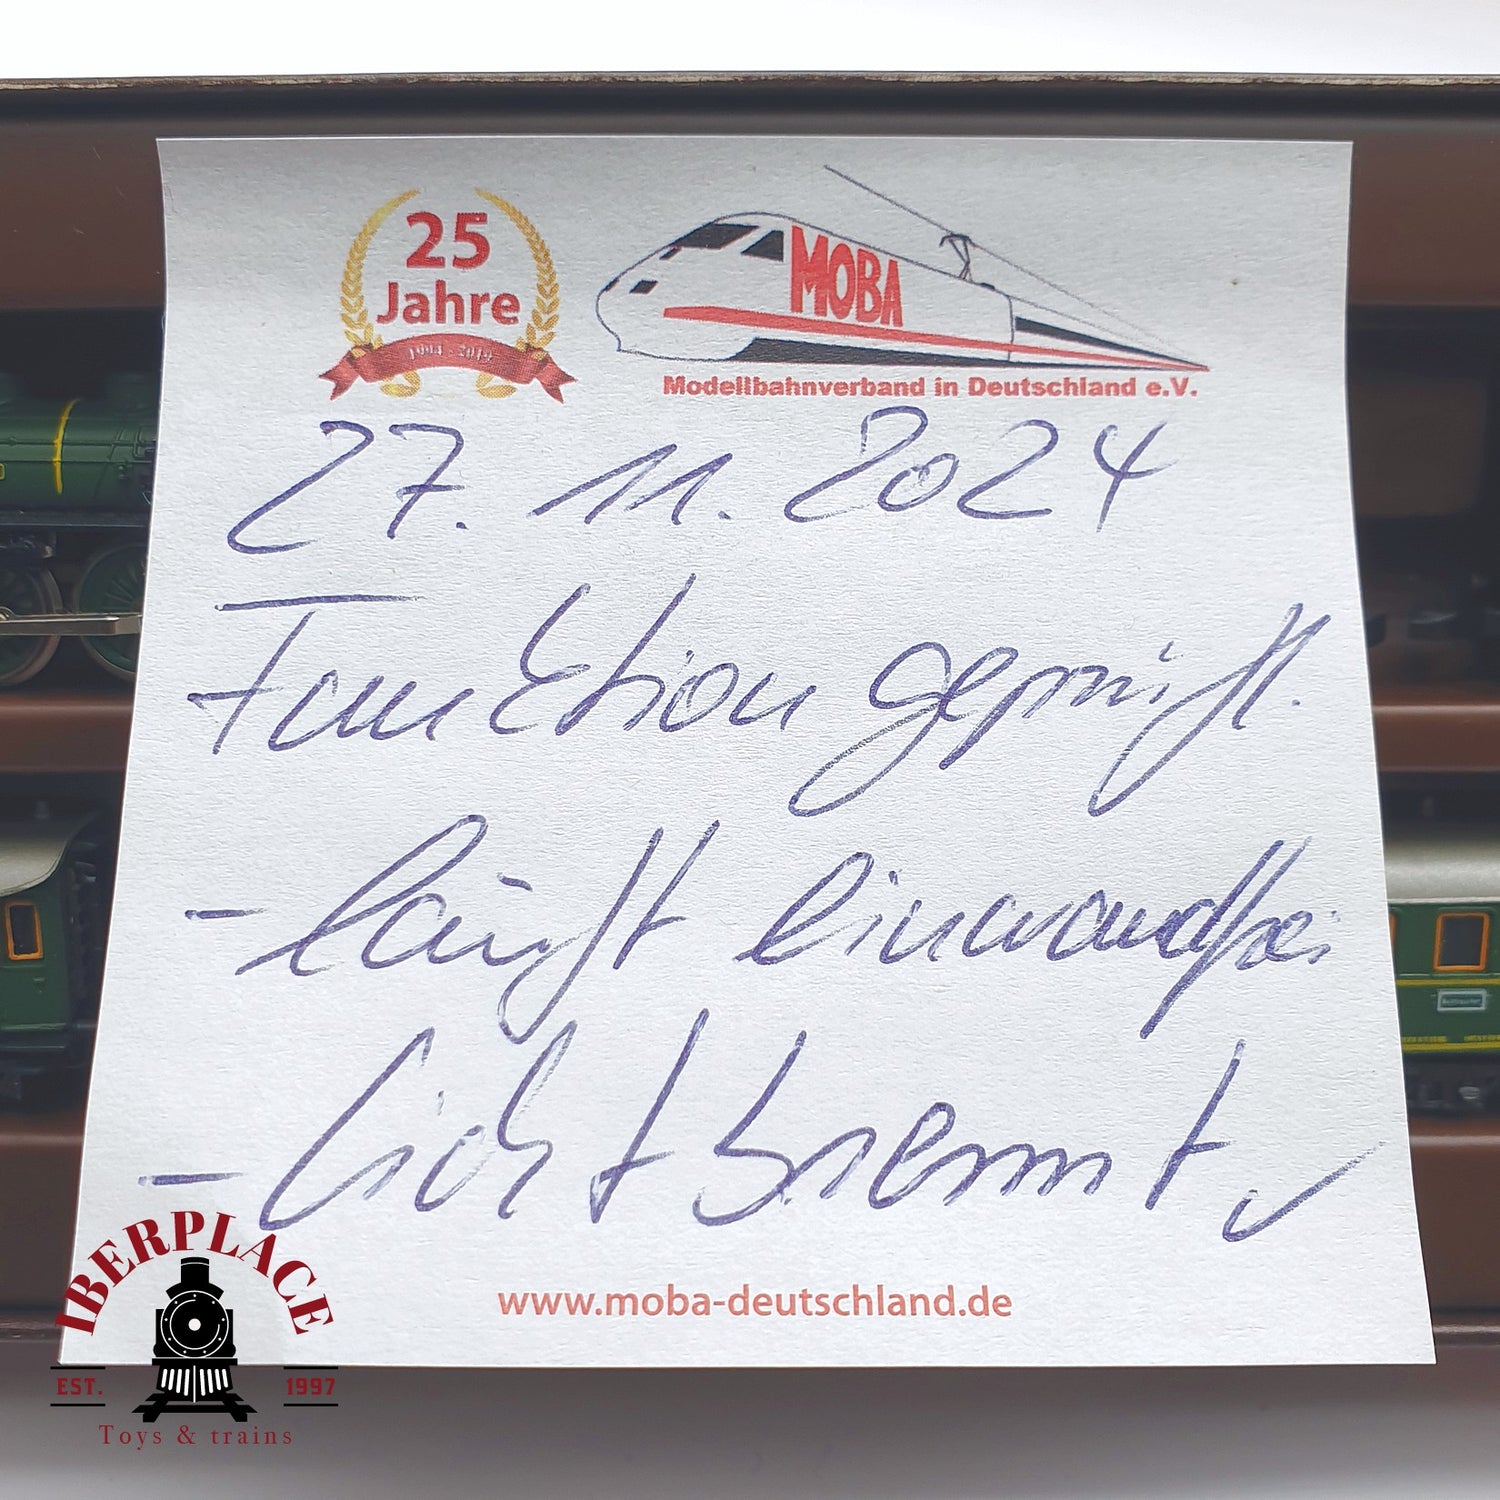 25
Jahre
1994 - 2019
MOBA
Modellbahnverband in Deutschland e.V.
27. 11. 2024
Funktion geprüft.
- läuft einwandfrei
- Licht brennt ✓
www.moba-deutschland.de
IBERPLACE
EST. 1997
Toys & trains